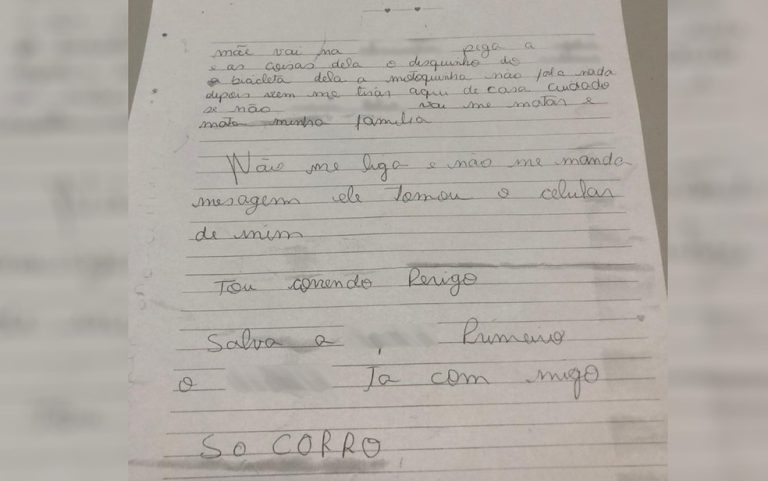 mãe vai na pega a
e as coisas dela o disquinho do
bicicleta dela a motoquinha não fala nada
depois vem me tirar aqui de casa cuidado
se não vai me matar e
mata minha familia
Não me liga e não me manda
mesagem ele tomou o celular
de mim
Tou correndo Perigo
Salva a Rimeiro
o Ta com migo
SO CORRO